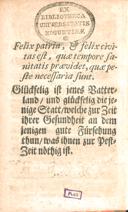 EX
BIBLIOTHECA
UNIVERSITATIS
MOGUNTINÆ
Felix patria, & felix civi-
tas est, quæ tempore sa-
nitatis prævidet, quæ pe-
ste necessaria sunt.
Glückselig ist jenes Vatter-
land / und glückselig die je-
nige Statt, welche zur Zeit
ihrer Gesundheit an dem
jenigen gute Fürsehung
thun / was ihnen zur Pest-
Zeit nöthig ist.